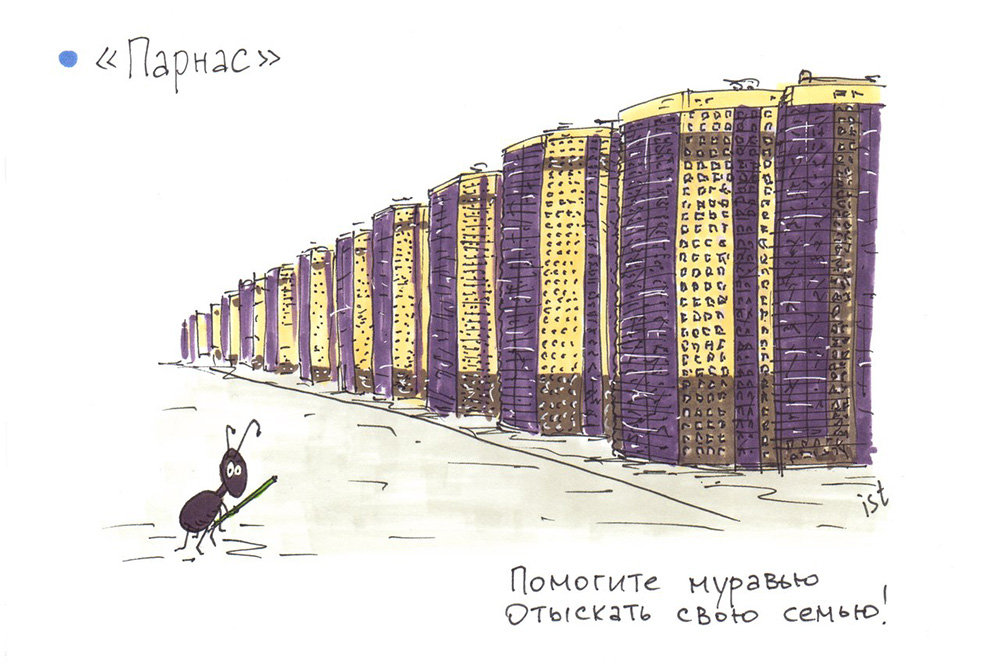 «Парнас»
ist
Помогите муравью
отыскать свою семью!